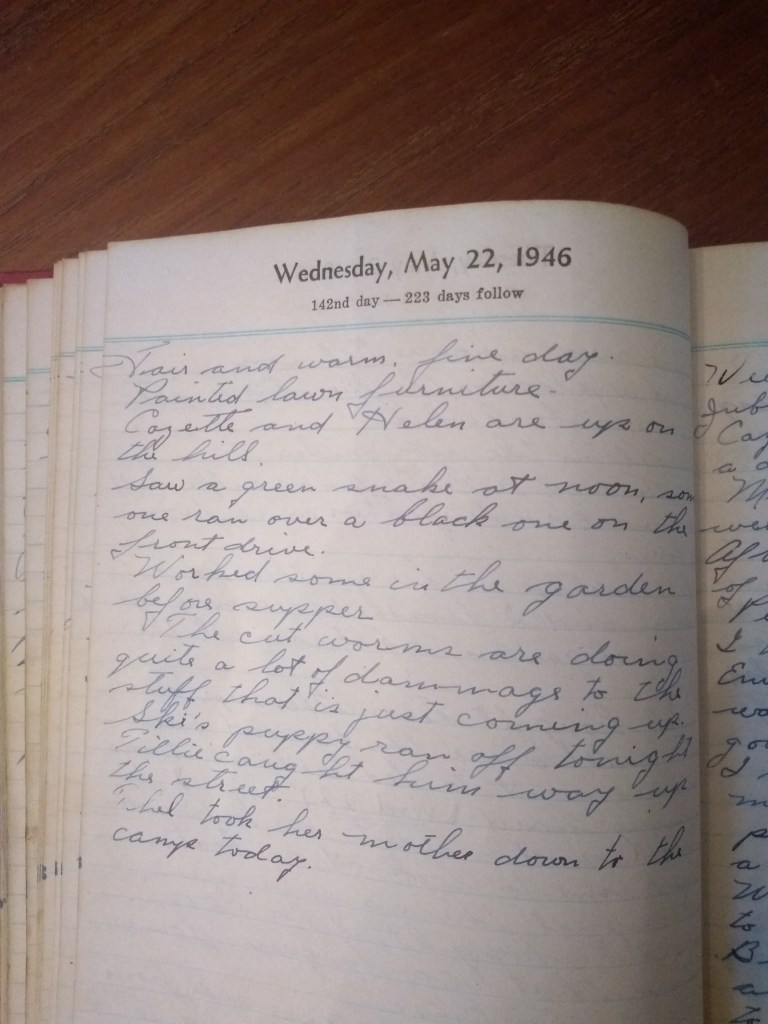 Wednesday, May 22, 1946
142nd day — 223 days follow
Fair and warm, fine day.
Painted lawn furniture.
Cozette and Helen are up on
the hill.
Saw a green snake at noon, som
one ran over a black one on the
front drive.
Worked some in the garden
before supper
The cut worms are doing
quite a lot of dammage to the
stuff that is just coming up.
Ski's puppy ran off tonight
Tillie caught him way up
the street.
Thel took her mother down to the
camp today.